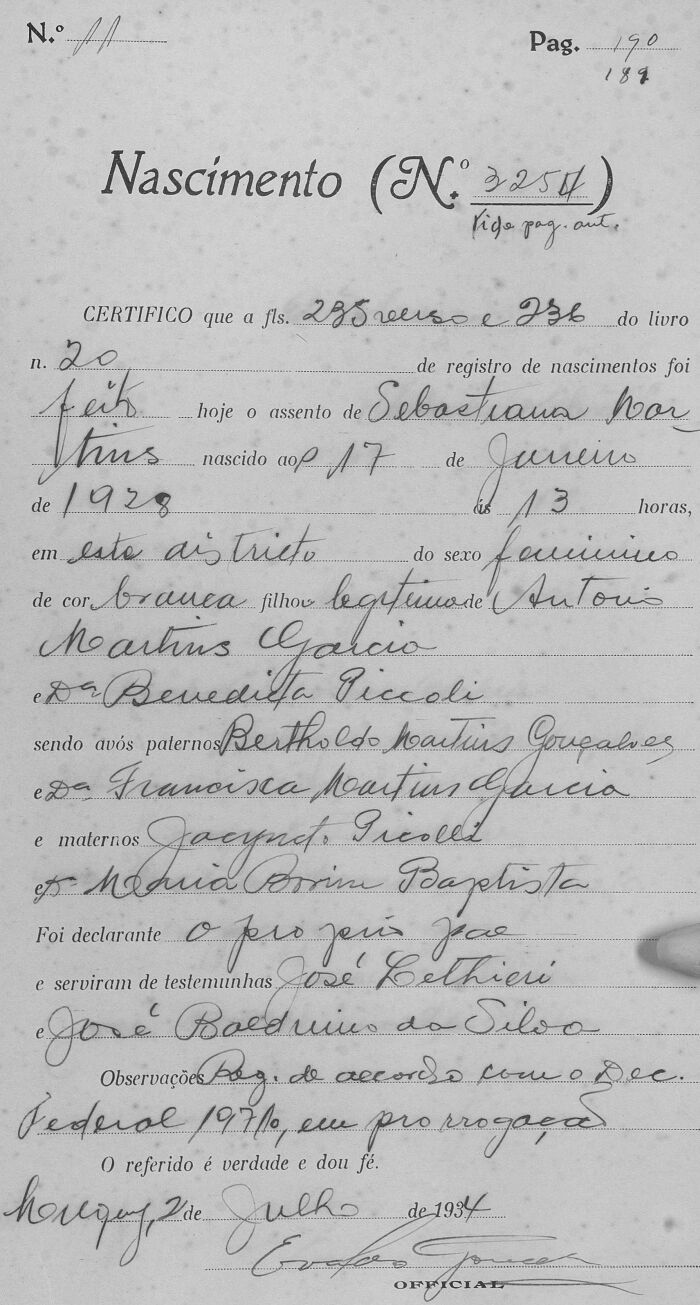 N.º 11 Pag. 190
189
Nascimento (N.º 3254)
Vide pag. ant.
CERTIFICO que a fls. 235 verso e 236 do livro
n. 20 de registro de nascimentos foi
feito hoje o assento de Sebastiana Mar-
tins nascido aos 17 de Janeiro
de 1928 ás 13 horas,
em este districto do sexo feminino
de cor branca filho legitima de Antonio
Martins Garcia
e Dª Benedicta Piccoli
sendo avós paternos Bertholdo Martins Gonçalves
e Dª Francisca Martins Garcia
e maternos Jacyncto Picolli
e Dª Maria Baptista
Foi declarante o proprio pae
e serviram de testemunhas José Lethieri
e José Balduino da Silva
Observações Reg. de accordo com o Dec.
Federal 19710, em prorrogação
O referido é verdade e dou fé.
2 de Julho de 1934
OFFICIAL